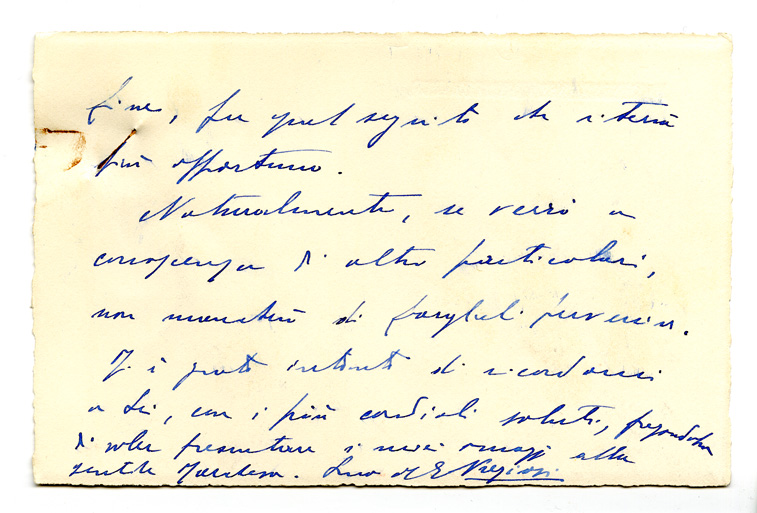 fine, per quel seguito che riterrà
più opportuno.
Naturalmente, se verrò a
conoscenza di altri particolari,
non mancherò di farglieli pervenire.
Mi è grato intanto di ricordarmi
a Lei, con i più cordiali saluti, pregandola
di voler presentare i miei omaggi alla
gentile Marchesa. Suo